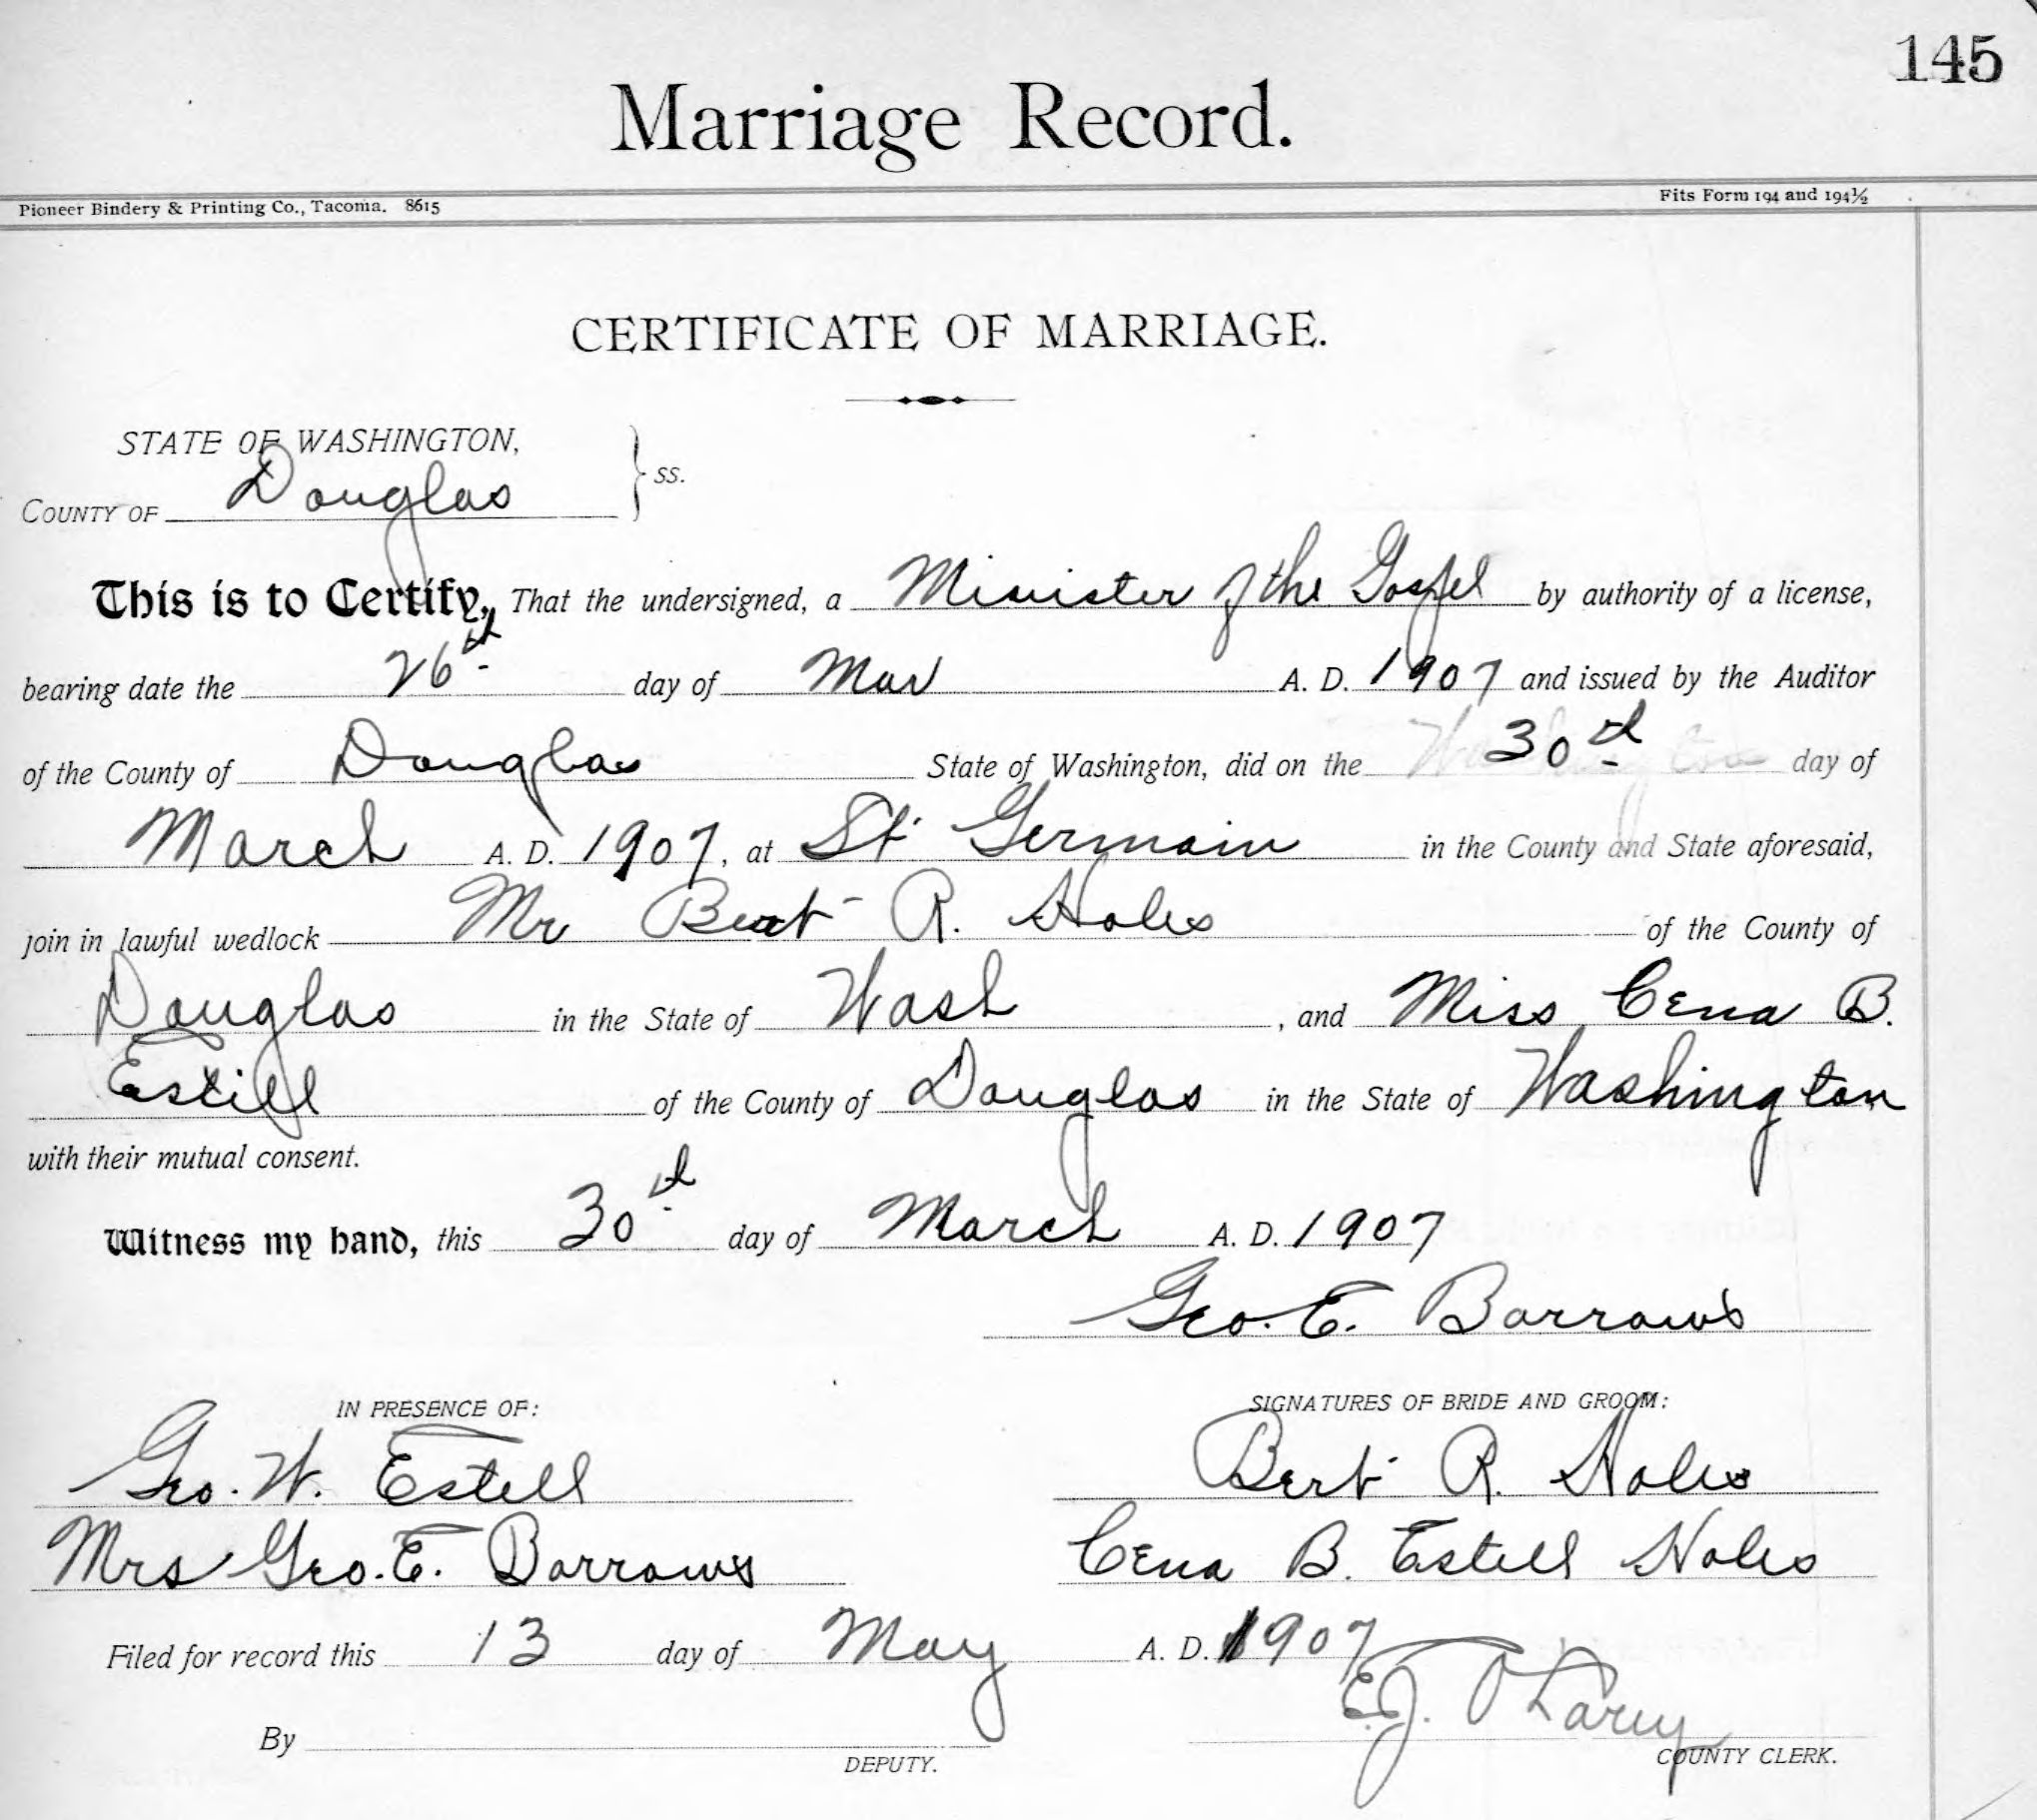 145
Marriage Record.
Pioneer Bindery & Printing Co., Tacoma. 8615 Fits Form 194 and 194½
CERTIFICATE OF MARRIAGE.
STATE OF WASHINGTON,
COUNTY OF Douglas } ss.
This is to Certify, That the undersigned, a Minister of the Gospel by authority of a license,
bearing date the 26th day of Mar A. D. 1907 and issued by the Auditor
of the County of Douglas State of Washington, did on the 30th day of
March A. D. 1907, at St Germain in the County and State aforesaid,
join in lawful wedlock Mr Bert R. Holes of the County of
Douglas in the State of Wash, and Miss Cena B.
Estill of the County of Douglas in the State of Washington
with their mutual consent.
Witness my hand, this 30th day of March A. D. 1907
Geo. E. Barrows
IN PRESENCE OF: SIGNATURES OF BRIDE AND GROOM:
Geo. W. Estell Bert R. Holes
Mrs Geo. E. Barrows Cena B. Estell Holes
Filed for record this 13 day of May A. D. 1907
By E. J.
DEPUTY. COUNTY CLERK.